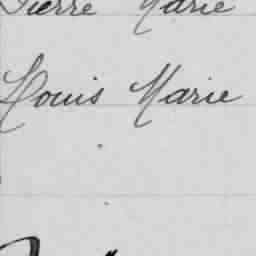 Pierre Marie
Louis Marie